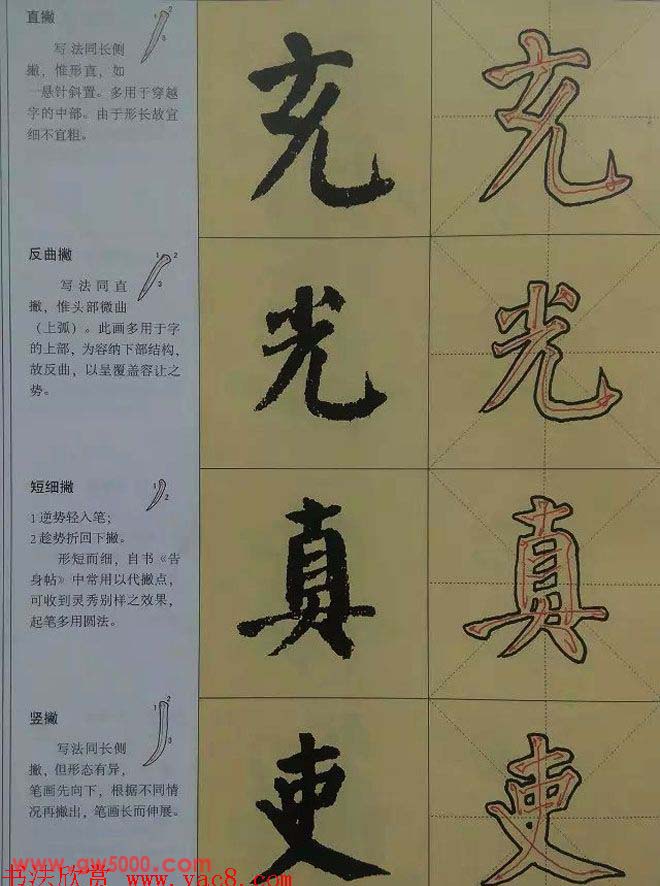 直撇
写法同长侧
撇，惟形直，如
一悬针斜置。多用于穿越
字的中部。由于形长故宜
细不宜粗。
1
2
3
充
充
反曲撇
写法同直
撇，惟头部微曲
（上弧）。此画多用于字
的上部，为容纳下部结构，
故反曲，以呈覆盖容让之
势。
1
2
3
光
光
短细撇
1逆势轻入笔；
2趁势折回下撇。
形短而细，自书《告
身帖》中常用以代撇点，
可收到灵秀别样之效果，
起笔多用圆法。
1
2
真
真
竖撇
写法同长侧
撇，但形态有异，
笔画先向下，根据不同情
况再撇出，笔画长而伸展。
1
2
3
吏
吏
www.gw5000.com
书法欣赏 www.yac8.com